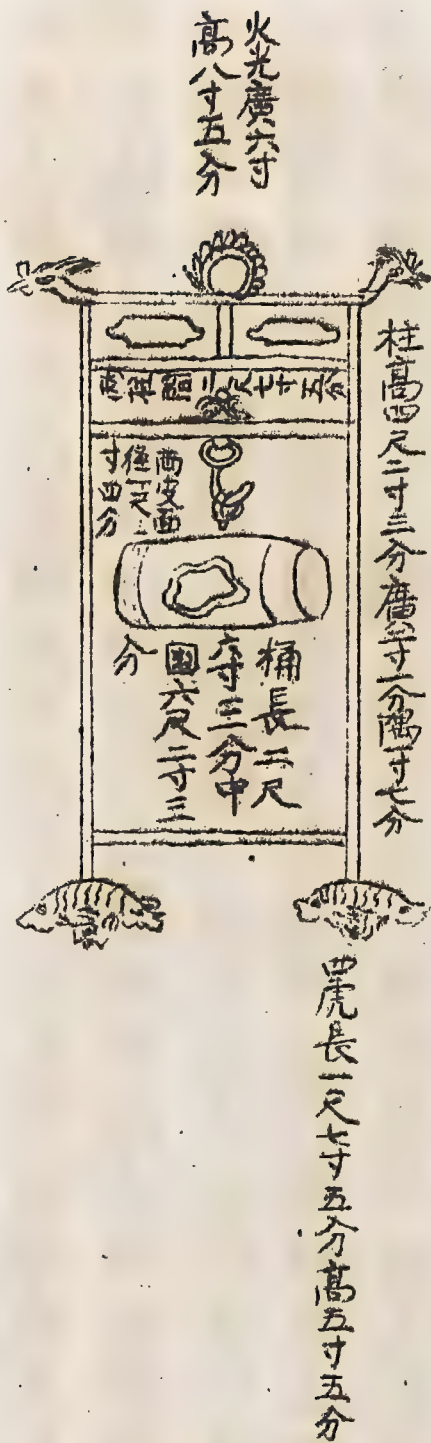 火光廣六寸
高八寸五分
柱高四尺二寸三分廣寸一分隅寸七分
兩柱隔二尺七寸五分
兩皮面
徑一尺二
寸四分
桶長二尺
六寸三分中
圍六尺二寸三
分
四虎長一尺七寸五分高五寸五分